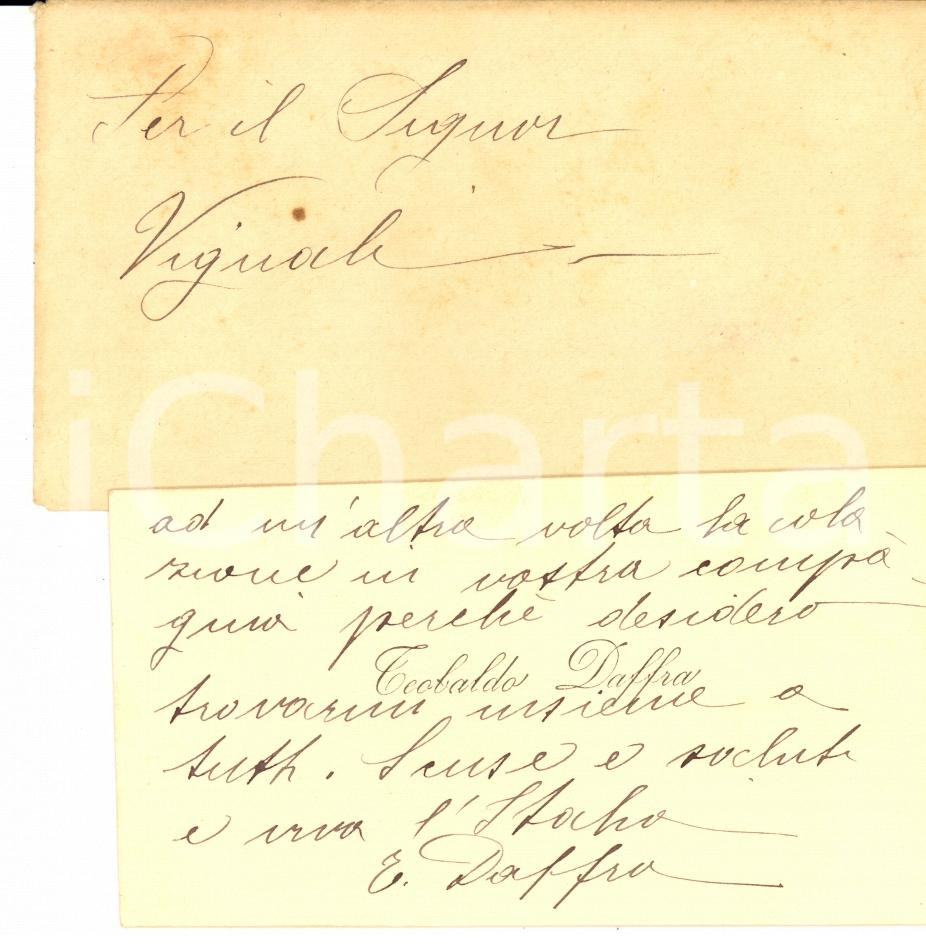 Per il Signor
Vignali
iCharta
ad un'altra volta la cola
zione in vostra compa-
gnia perchè desidero
Teobaldo Daffra
trovarmi insieme a
tutti. Scuse e saluti
e viva l'Italia
E. Daffra